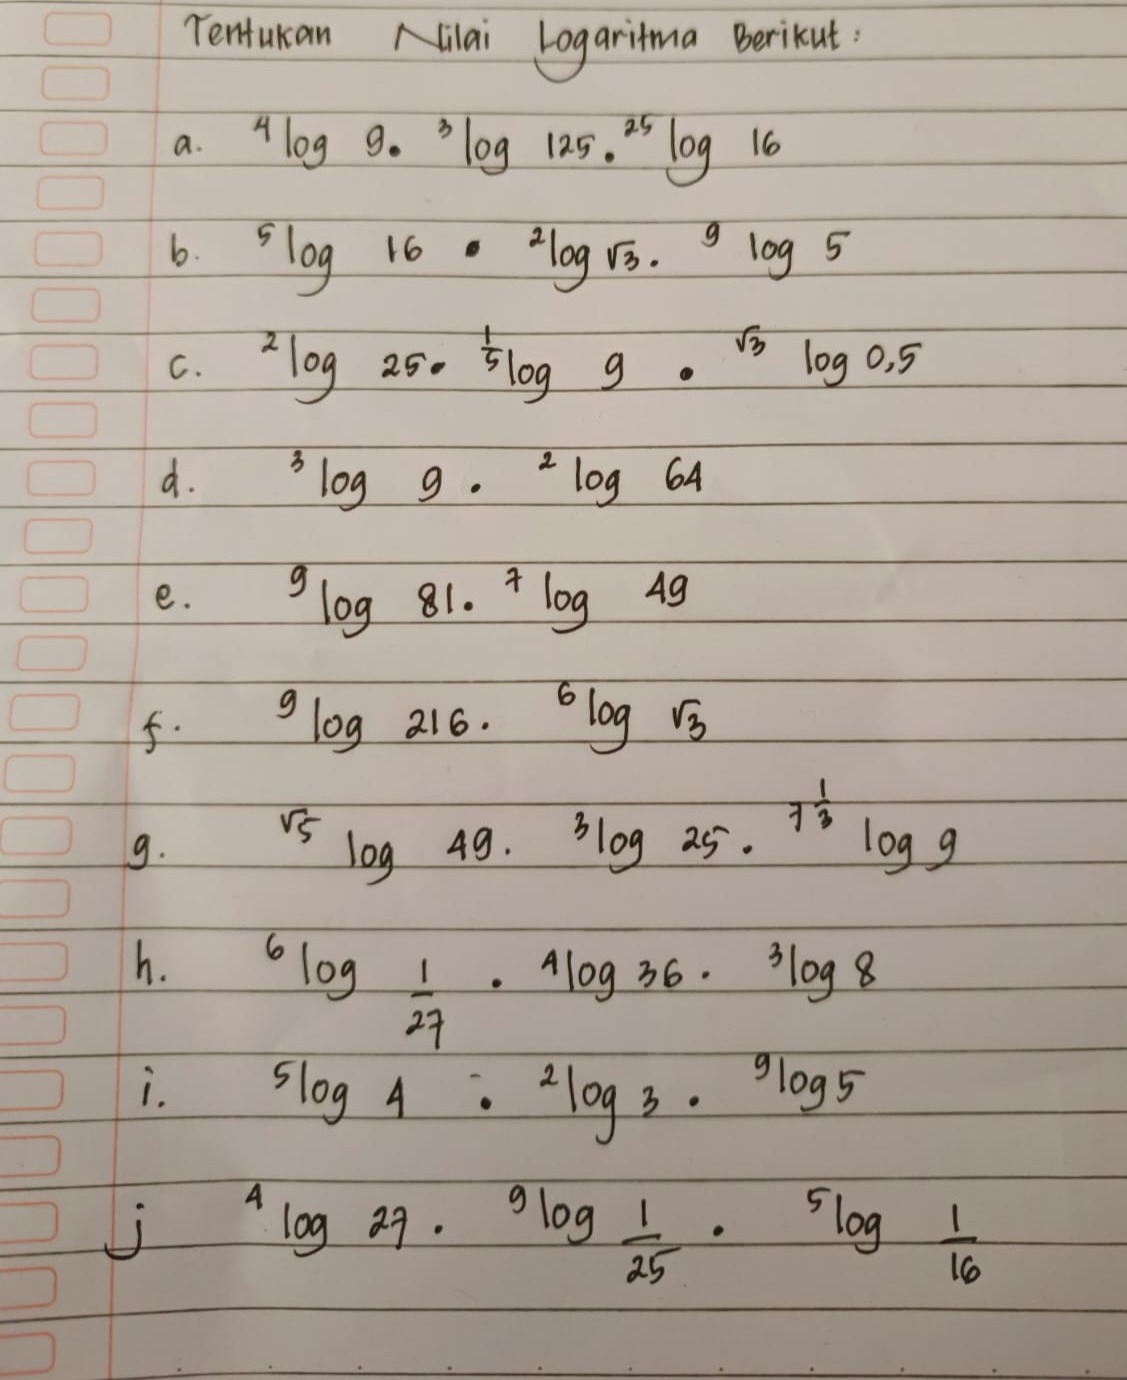 Tentukan Nilai Logaritma Berikut:
a. ⁴log 9 . ³log 125 . ²⁵log 16
b. ⁵log 16 • ²log √3 . ⁹log 5
c. ²log 25 • ^(1/5)log 9 • ^(√3)log 0,5
d. ³log 9 . ²log 64
e. ⁹log 81 . ⁷log 49
f. ⁹log 216 . ⁶log √3
g. ^(√5)log 49 . ³log 25 . ^(7^(1/3))log 9
h. ⁶log 1/27 . ⁴log 36 . ³log 8
i. ⁵log 4 . ²log 3 . ⁹log 5
j ⁴log 27 . ⁹log 1/25 . ⁵log 1/16